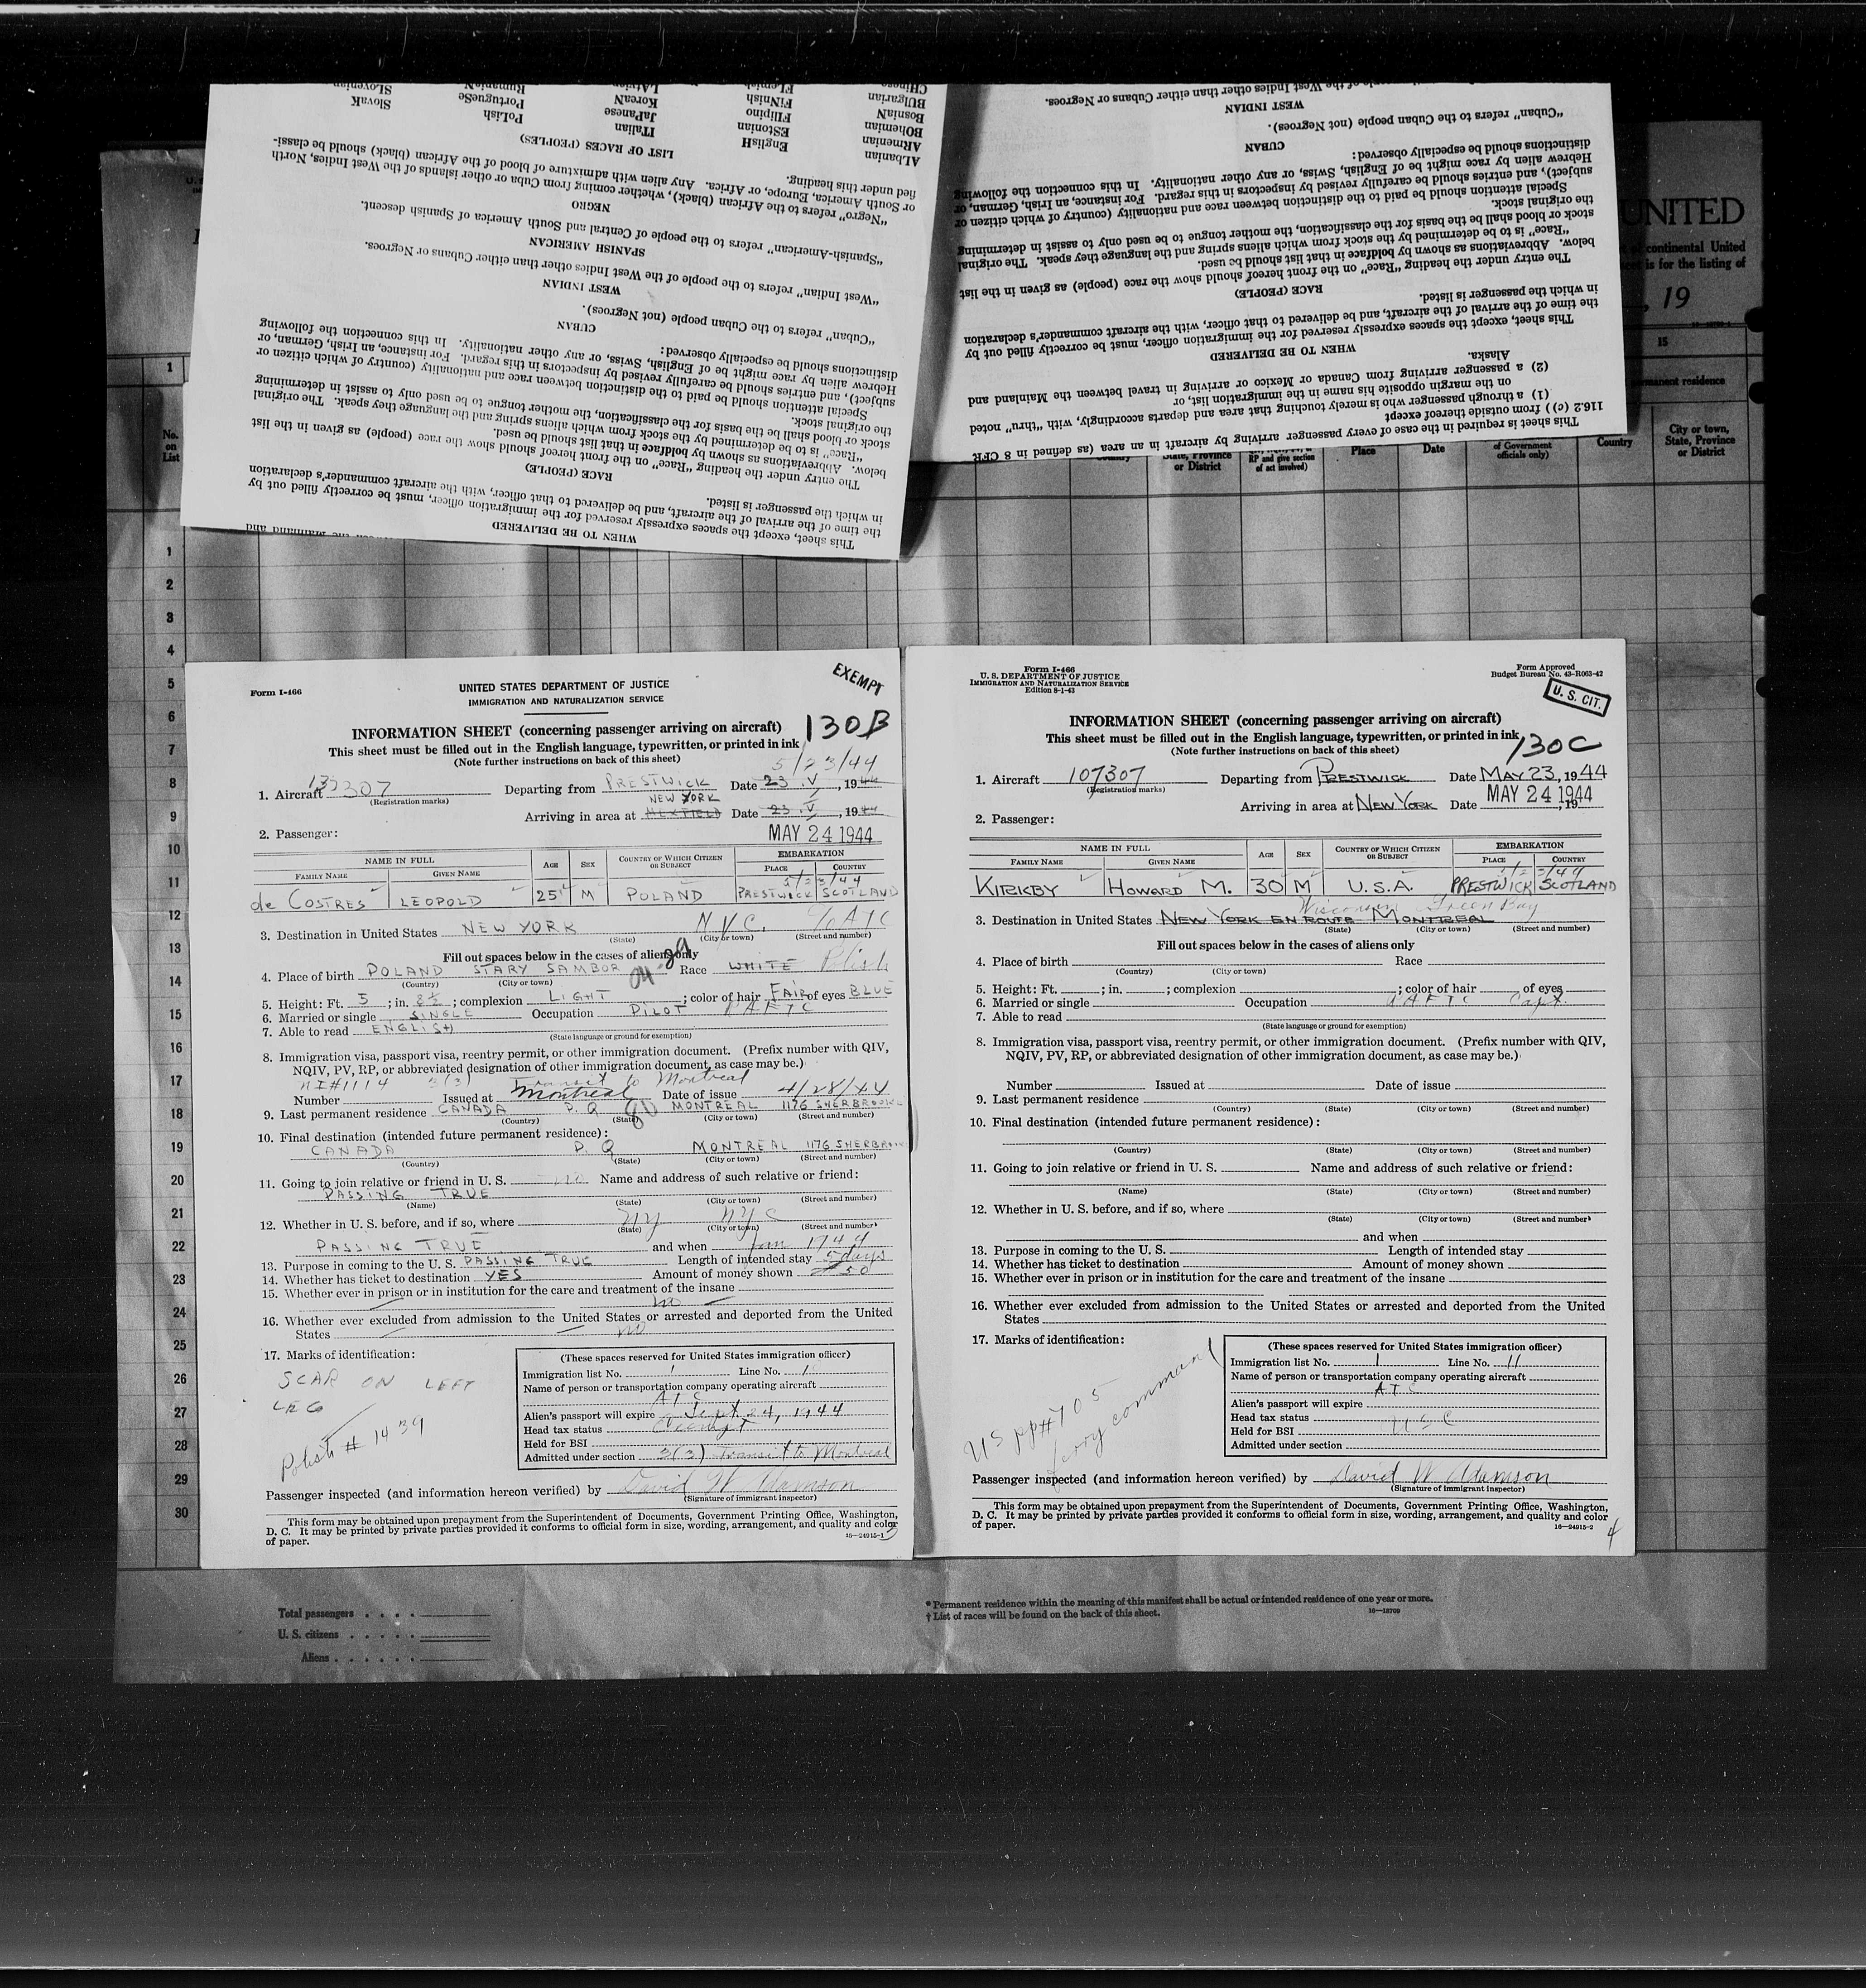 CHinese
BUlgarian
BosniaN
BOhemian
ARmenian
ALbanian
FLemish
FiNnish
FIlipino
EStonian
EngliSH
LAtvian
KoreaN
JaPanese
ITalian
RumaniaN
PortugueSe
PoLish
SLovenian
SlovaK
LIST OF RACES (PEOPLES)
fied under this heading.
or South America, Europe, or Africa. Any alien with admixture of blood of the African (black) should be classi-
"Negro" refers to the African (black), whether coming from Cuba or other islands of the West Indies, North
NEGRO
"Spanish-American" refers to the people of Central and South America of Spanish descent.
SPANISH AMERICAN
"West Indian" refers to the people of the West Indies other than either Cubans or Negroes.
WEST INDIAN
"Cuban" refers to the Cuban people (not Negroes).
CUBAN
distinctions should be especially observed:
Hebrew alien by race might be of English, Swiss, or any other nationality. In this connection the following
subject), and entries should be carefully revised by inspectors in this regard. For instance, an Irish, German, or
Special attention should be paid to the distinction between race and nationality (country of which citizen or
the original stock.
stock or blood shall be the basis for the classification, the mother tongue to be used only to assist in determining
"Race" is to be determined by the stock from which aliens spring and the language they speak. The original
below. Abbreviations as shown by boldface in that list should be used.
The entry under the heading "Race" on the front hereof should show the race (people) as given in the list
RACE (PEOPLE)
in which the passenger is listed.
the time of the arrival of the aircraft, and be delivered to that officer, with the aircraft commander's declaration
This sheet, except the spaces expressly reserved for the immigration officer, must be correctly filled out by
WHEN TO BE DELIVERED
people of the West Indies other than either Cubans or Negroes.
WEST INDIAN
"Cuban" refers to the Cuban people (not Negroes).
CUBAN
distinctions should be especially observed:
Hebrew alien by race might be of English, Swiss, or any other nationality. In this connection the following
subject), and entries should be carefully revised by inspectors in this regard. For instance, an Irish, German, or
Special attention should be paid to the distinction between race and nationality (country of which citizen or
the original stock.
stock or blood shall be the basis for the classification, the mother tongue to be used only to assist in determining
"Race" is to be determined by the stock from which aliens spring and the language they speak. The original
below. Abbreviations as shown by boldface in that list should be used.
The entry under the heading "Race" on the front hereof should show the race (people) as given in the list
RACE (PEOPLE)
in which the passenger is listed.
the time of the arrival of the aircraft, and be delivered to that officer, with the aircraft commander's declaration
This sheet, except the spaces expressly reserved for the immigration officer, must be correctly filled out by
WHEN TO BE DELIVERED
Alaska.
(2) a passenger arriving from Canada or Mexico or arriving in travel between the Mainland and
on the margin opposite his name in the immigration list, or
(1) a through passenger who is merely touching that area and departs accordingly, with "thru" noted
116.2 (c)) from outside thereof except
This sheet is required in the case of every passenger arriving by aircraft in an area (as defined in 8 CFR
UNITED
continental United
is for the listing of
, 19
15
permanent residence
City or town, State, Province or District
Country
of Government officials only)
Date
Place
RP and give section of act involved)
State, Province or District
No. on List
1
1
2
3
4
5
6
7
8
9
10
11
12
13
14
15
16
17
18
19
20
21
22
23
24
25
26
27
28
29
30
Form I-466
UNITED STATES DEPARTMENT OF JUSTICE
IMMIGRATION AND NATURALIZATION SERVICE
EXEMPT
INFORMATION SHEET (concerning passenger arriving on aircraft) 130B
This sheet must be filled out in the English language, typewritten, or printed in ink
(Note further instructions on back of this sheet) 5/23/44
1. Aircraft 107307 Departing from PRESTWICK Date 23 V, 1944
(Registration marks)
NEW YORK
Arriving in area at Date 23 V, 1944
2. Passenger: MAY 24 1944
NAME IN FULL AGE SEX COUNTRY OF WHICH CITIZEN OR SUBJECT EMBARKATION
FAMILY NAME GIVEN NAME PLACE COUNTRY
5/23/44
de COSTRES LEOPOLD 25 M POLAND PRESTWICK SCOTLAND
3. Destination in United States NEW YORK N.Y.C. c/o ATC
(State) (City or town) (Street and number)
Fill out spaces below in the cases of aliens only
4. Place of birth POLAND STARY SAMBOR Race WHITE Polish
(Country) (City or town)
5. Height: Ft. 5; in. 8½; complexion LIGHT; color of hair FAIR of eyes BLUE
6. Married or single SINGLE Occupation PILOT RAFTC
7. Able to read ENGLISH
(State language or ground for exemption)
8. Immigration visa, passport visa, reentry permit, or other immigration document. (Prefix number with QIV,
NQIV, PV, RP, or abbreviated designation of other immigration document, as case may be.)
NI#1114 3(3) Transit to Montreal
Number Issued at Montreal Date of issue 4/28/44
9. Last permanent residence CANADA P.Q MONTREAL 1176 SHERBROOKE
(Country) (State) (City or town) (Street and number)
10. Final destination (intended future permanent residence):
CANADA P.Q MONTREAL 1176 SHERBROOK
(Country) (State) (City or town) (Street and number)
11. Going to join relative or friend in U. S. no Name and address of such relative or friend:
PASSING TRUE
(Name) (State) (City or town) (Street and number)
12. Whether in U. S. before, and if so, where NY NYC
(State) (City or town) (Street and number)
PASSING TRUE and when Jan 1944
13. Purpose in coming to the U. S. PASSING TRUE Length of intended stay 5 days
14. Whether has ticket to destination YES Amount of money shown 50
15. Whether ever in prison or in institution for the care and treatment of the insane
no
16. Whether ever excluded from admission to the United States or arrested and deported from the United
States no
17. Marks of identification:
SCAR ON LEFT
LEG
Polish # 1439
(These spaces reserved for United States immigration officer)
Immigration list No. 1 Line No. 1
Name of person or transportation company operating aircraft
ATC
Alien's passport will expire Sept 24, 1944
Head tax status Exempt
Held for BSI
Admitted under section 3(3) Transit to Montreal
Passenger inspected (and information hereon verified) by David W Adamson
(Signature of immigrant inspector)
This form may be obtained upon prepayment from the Superintendent of Documents, Government Printing Office, Washington,
D. C. It may be printed by private parties provided it conforms to official form in size, wording, arrangement, and quality and color
of paper. 16—24915-1
3
Form I-466
U. S. DEPARTMENT OF JUSTICE
IMMIGRATION AND NATURALIZATION SERVICE
Edition 8-1-43
Form Approved
Budget Bureau No. 43-R063-42
U. S. CIT.
INFORMATION SHEET (concerning passenger arriving on aircraft)
This sheet must be filled out in the English language, typewritten, or printed in ink
(Note further instructions on back of this sheet) 130C
1. Aircraft 107307 Departing from PRESTWICK Date MAY 23, 1944
(Registration marks)
Arriving in area at NEW YORK Date MAY 24 1944, 19
2. Passenger:
NAME IN FULL AGE SEX COUNTRY OF WHICH CITIZEN OR SUBJECT EMBARKATION
FAMILY NAME GIVEN NAME PLACE COUNTRY
5/23/44
KIRKBY HOWARD M. 30 M U.S.A. PRESTWICK SCOTLAND
Wisconsin Green Bay
3. Destination in United States NEW YORK EN ROUTE MONTREAL
(State) (City or town) (Street and number)
Fill out spaces below in the cases of aliens only
4. Place of birth Race
(Country) (City or town)
5. Height: Ft. ; in. ; complexion ; color of hair of eyes
6. Married or single Occupation RAFTC Capt.
7. Able to read
(State language or ground for exemption)
8. Immigration visa, passport visa, reentry permit, or other immigration document. (Prefix number with QIV,
NQIV, PV, RP, or abbreviated designation of other immigration document, as case may be.)
Number Issued at Date of issue
9. Last permanent residence
(Country) (State) (City or town) (Street and number)
10. Final destination (intended future permanent residence):
(Country) (State) (City or town) (Street and number)
11. Going to join relative or friend in U. S. Name and address of such relative or friend:
(Name) (State) (City or town) (Street and number)
12. Whether in U. S. before, and if so, where
(State) (City or town) (Street and number)
and when
13. Purpose in coming to the U. S. Length of intended stay
14. Whether has ticket to destination Amount of money shown
15. Whether ever in prison or in institution for the care and treatment of the insane
16. Whether ever excluded from admission to the United States or arrested and deported from the United
States
17. Marks of identification:
US pp# 705
ferry command
(These spaces reserved for United States immigration officer)
Immigration list No. 1 Line No. 11
Name of person or transportation company operating aircraft
ATC
Alien's passport will expire
Head tax status USC
Held for BSI
Admitted under section
Passenger inspected (and information hereon verified) by David W Adamson
(Signature of immigrant inspector)
This form may be obtained upon prepayment from the Superintendent of Documents, Government Printing Office, Washington,
D. C. It may be printed by private parties provided it conforms to official form in size, wording, arrangement, and quality and color
of paper. 16—24915-2
4
Total passengers
U. S. citizens
Aliens
* Permanent residence within the meaning of this manifest shall be actual or intended residence of one year or more.
† List of races will be found on the back of this sheet. 16—18700